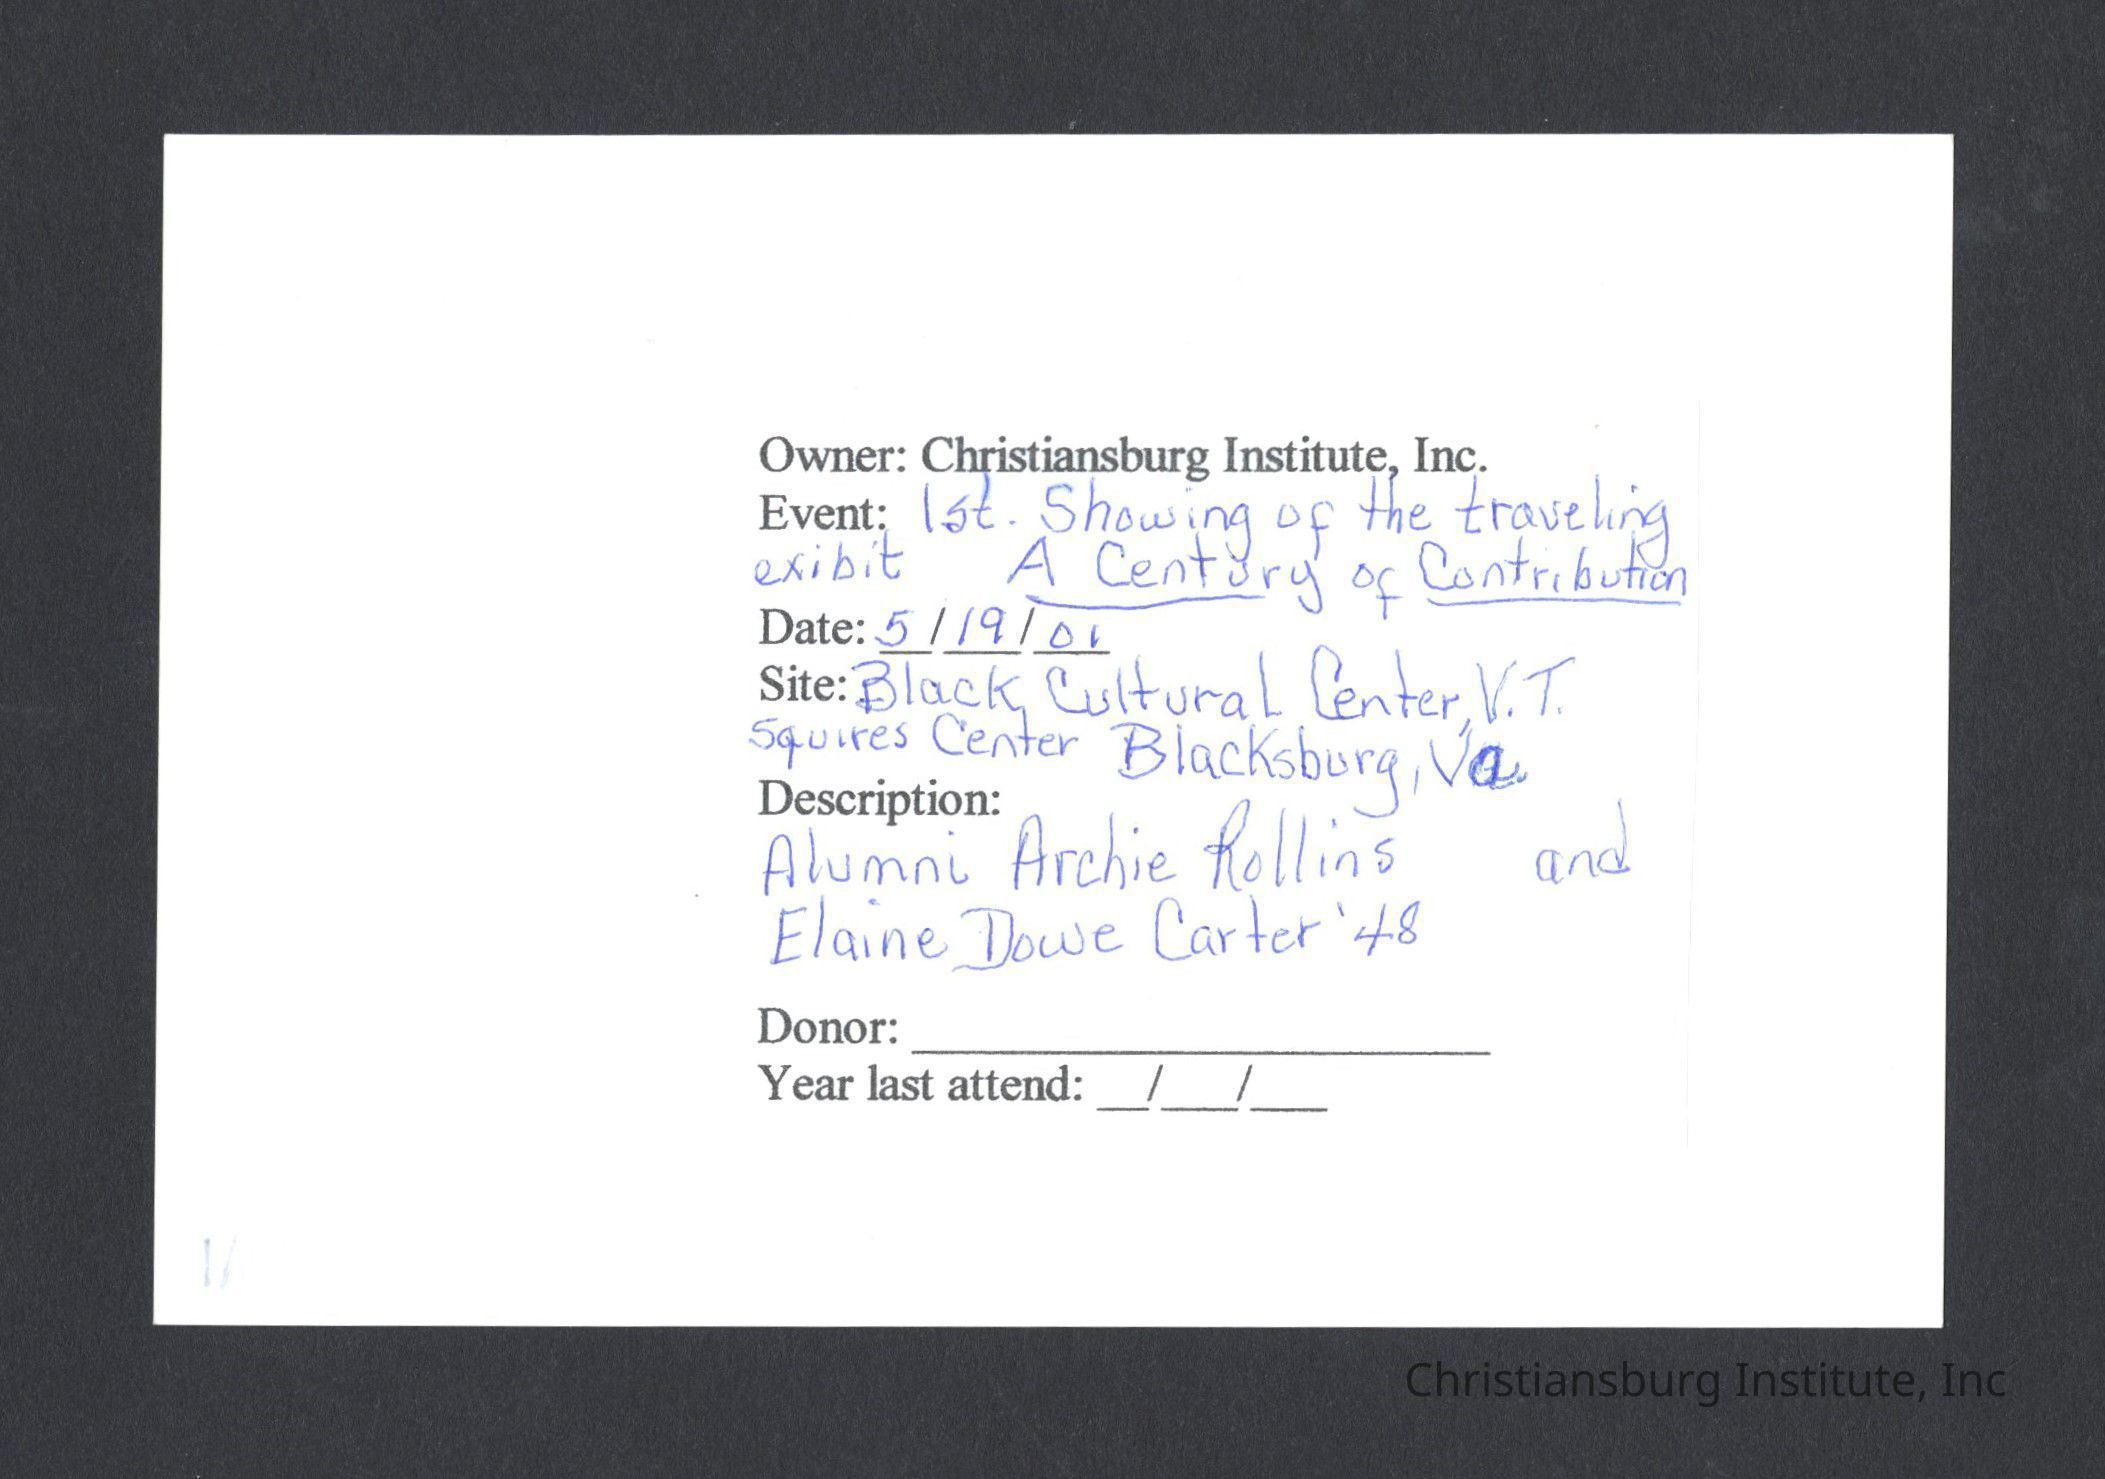 Owner: Christiansburg Institute, Inc.
Event: 1st. Showing of the traveling
exibit A Century of Contribution
Date: 5/19/01
Site: Black Cultural Center, V.T.
Squires Center Blacksburg, Va.
Description:
Alumni Archie Rollins and
Elaine Dowe Carter '48
Donor: ____________________
Year last attend: __/___/___
Christiansburg Institute, Inc